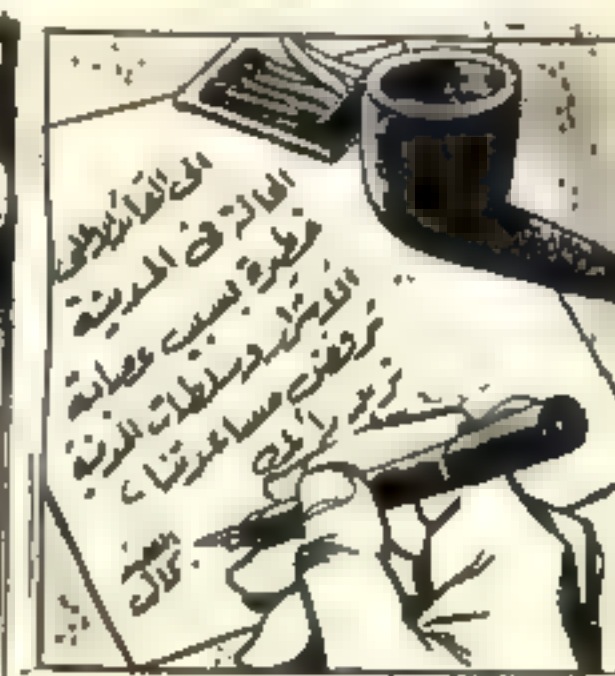 إلى القائد الأعلى
الحالة في المدينة
خطرة بسبب عصابة
الأشرار وسلطات المدينة
ترفض مساعدتنا،
نريد رأيك
العميد
كمال